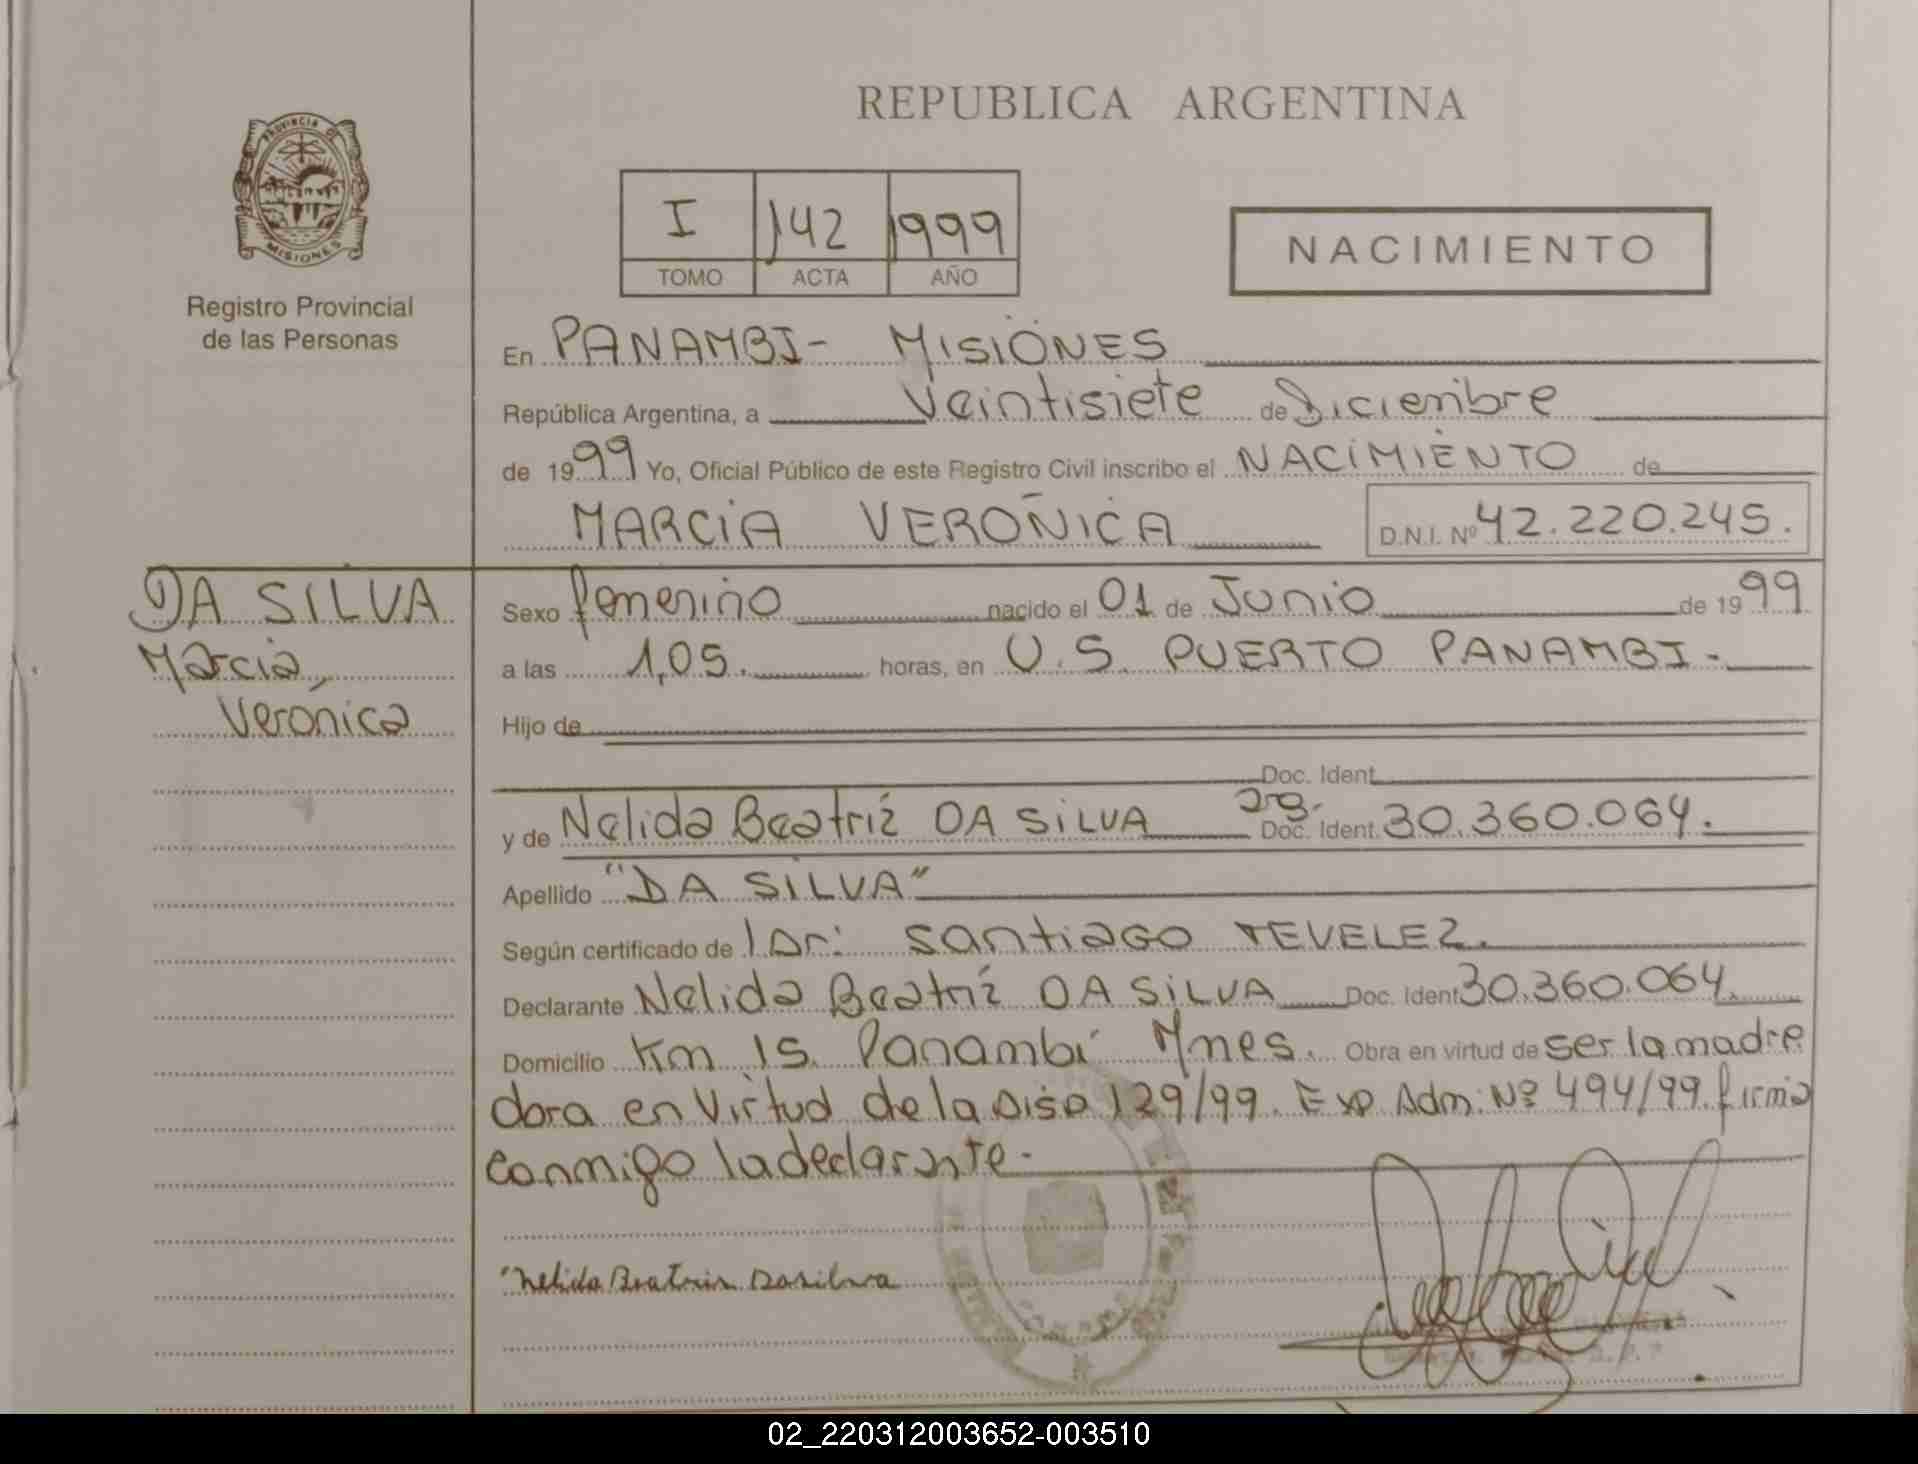 REPUBLICA ARGENTINA
PROVINCIA DE
MISIONES
Registro Provincial
de las Personas
I 142 1999
TOMO ACTA AÑO
NACIMIENTO
En PANAMBI- MISIONES
República Argentina, a veintisiete de Diciembre
de 1999 Yo, Oficial Público de este Registro Civil inscribo el NACIMIENTO de
MARCIA VERONICA D.N.I. Nº 42.220.245.
DA SILVA
Marcia,
Veronica
Sexo femenino nacido el 01 de Junio de 1999
a las 1,05. horas, en U.S. PUERTO PANAMBI-
Hijo de
Doc. Ident.
y de Nelida Beatriz DA SILVA Doc. Ident. 30.360.064.
Apellido "DA SILVA"
Según certificado de Dr: Santiago TEVELEZ.
Declarante Nelida Beatriz DA SILVA Doc. Ident 30.360.064.
Domicilio Km 15. Panambi Mnes. Obra en virtud de ser la madre
obra en virtud de la Disp 129/99. Exp Adm: Nº 494/99. firma
conmigo la declarante-
Nelida Beatris Dasilva
02_220312003652-003510